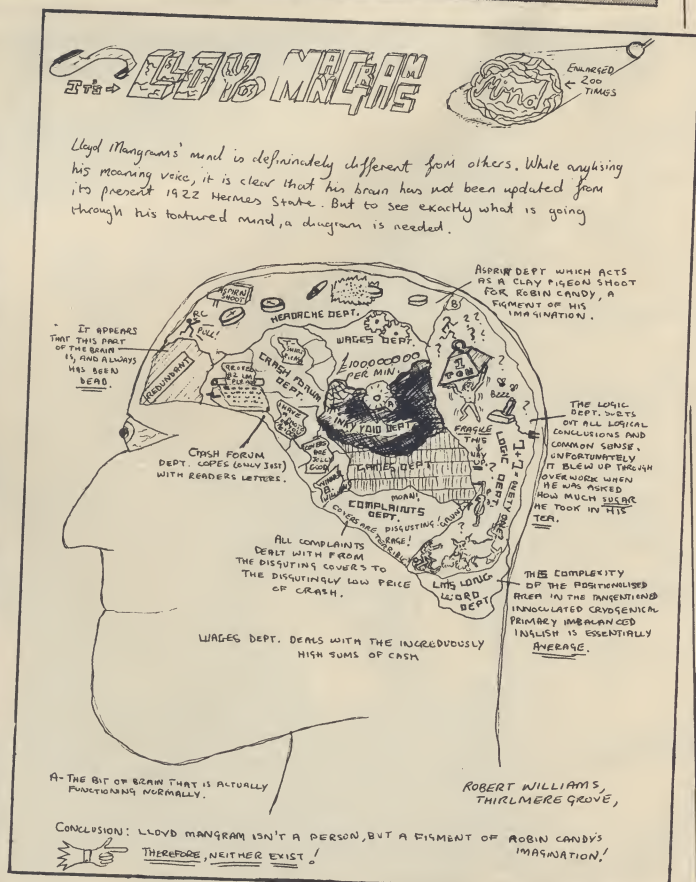 IT'S →
LLOYD MANGRAMS
Mind
ENLARGED
200
TIMES
Lloyd Mangrams' mind is defininately different from others. While anylising
his moaning voice, it is clear that his brain has not been updated from
its present 1922 Hermes State. But to see exactly what is going
through his tortured mind, a diagram is needed.
ASPRIN DEPT WHICH ACTS
AS A CLAY PIGEON SHOOT
FOR ROBIN CANDY, A
FIGMENT OF HIS
IMAGINATION.
ASPIRIN
SHOOT
R.C
PULL!
HEADACHE DEPT.
WAGES DEPT.
£1000000000
PER MIN.
B
IT APPEARS
THAT THIS PART
OF THE BRAIN
IS, AND ALWAYS
HAS BEEN
DEAD.
REDUNDANT
CRASH FORUM
DEPT.
1
TON
BZZZ
A
INKY VOID DEPT
FRAGILE
THIS
WAY
UP
GAMES DEPT
LOGIC DEPT.
1+1=
THE LOGIC
DEPT. SORTS
OUT ALL LOGICAL
CONCLUSIONS AND
COMMON SENSE.
UNFORTUNATELY
IT BLEW UP THROUGH
OVERWORK WHEN
HE WAS ASKED
HOW MUCH SUGAR
HE TOOK IN HIS
TEA.
CRASH FORUM
DEPT. COPES (ONLY JUST)
WITH READERS LETTERS.
COVERS
ARE
JOLLY
GOOD
MOAN!
COMPLAINTS
DEPT.
COVERS ARE DISGUSTING!
RAGE!
TERRIBLE
ALL COMPLAINTS
DEALT WITH FROM
THE DISGUTING COVERS TO
THE DISGUTINGLY LOW PRICE
OF CRASH.
LMS LONG
WORD
DEPT
THIS COMPLEXITY
OF THE POSITIONALISED
AREA IN THE TANGENTIONED
INNOCULATED CRYOGENICAL
PRIMARY IMBALANCED
INGLISH IS ESSENTIALLY
AVERAGE.
WAGES DEPT. DEALS WITH THE INCREDUOUSLY
HIGH SUMS OF CASH
A- THE BIT OF BRAIN THAT IS ACTUALLY
FUNCTIONING NORMALLY.
ROBERT WILLIAMS,
THIRLMERE GROVE,
CONCLUSION: LLOYD MANGRAM ISN'T A PERSON, BUT A FIGMENT OF ROBIN CANDY'S
IMAGINATION!
THEREFORE, NEITHER EXIST!